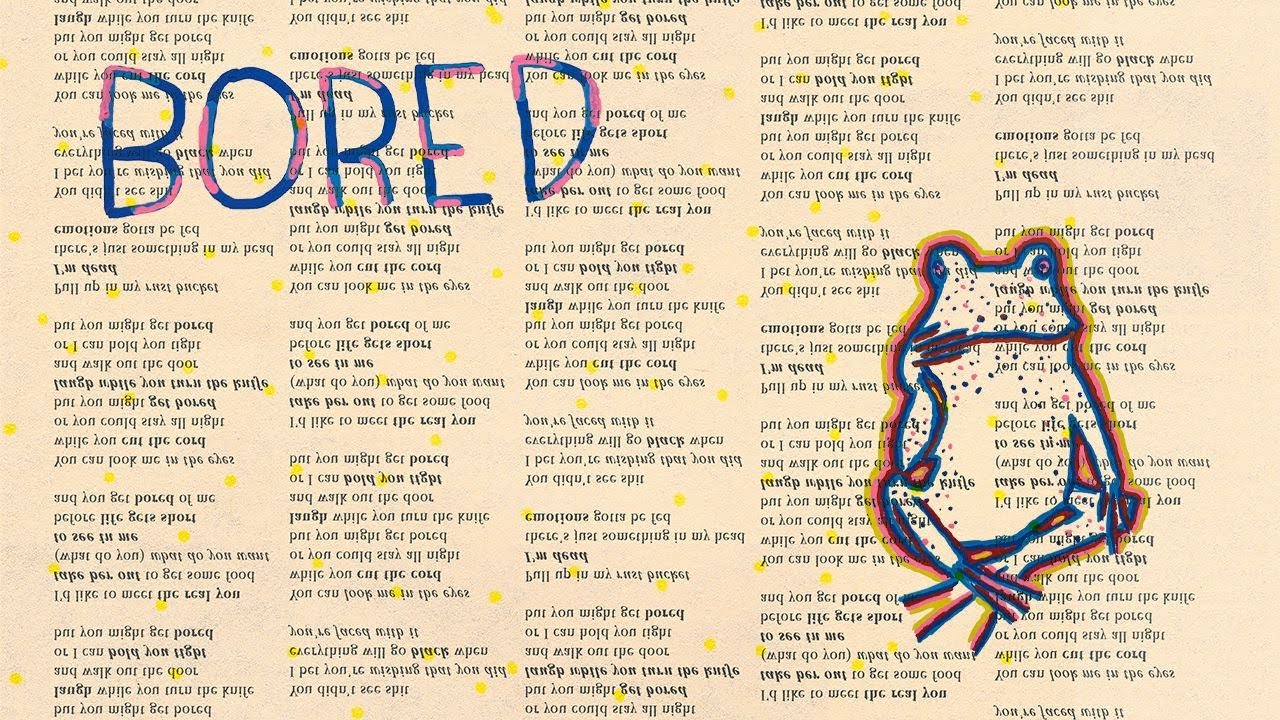 BORED
and walk out the door
laugh while you turn the knife
but you might get bored
or you could stay all night
while you cut the cord
You can look me in the eyes
you're faced with it
everything will go black when
I bet you're wishing that you did
You didn't see shit
emotions gotta be fed
there's just something in my head
I'm dead
Pull up in my rust bucket
but you might get bored
or I can hold you tight
and walk out the door
laugh while you turn the knife
but you might get bored
or you could stay all night
while you cut the cord
You can look me in the eyes
and you get bored of me
before life gets short
to see in me
(what do you) what do you want
take her out to get some food
I'd like to meet the real you
but you might get bored
or I can hold you tight
and walk out the door
laugh while you turn the knife
but you might get bored
I bet you're wishing that you did
You didn't see shit
emotions gotta be fed
there's just something in my head
I'm dead
Pull up in my rust bucket
but you might get bored
or I can hold you tight
and walk out the door
laugh while you turn the knife
but you might get bored
or you could stay all night
while you cut the cord
You can look me in the eyes
and you get bored of me
before life gets short
to see in me
(what do you) what do you want
take her out to get some food
I'd like to meet the real you
but you might get bored
or I can hold you tight
and walk out the door
laugh while you turn the knife
but you might get bored
or you could stay all night
while you cut the cord
You can look me in the eyes
you're faced with it
everything will go black when
I bet you're wishing that you did
You didn't see shit
laugh while you turn the knife
but you might get bored
or you could stay all night
while you cut the cord
You can look me in the eyes
and you get bored of me
before life gets short
to see in me
(what do you) what do you want
take her out to get some food
I'd like to meet the real you
but you might get bored
or I can hold you tight
and walk out the door
laugh while you turn the knife
but you might get bored
or you could stay all night
while you cut the cord
You can look me in the eyes
you're faced with it
everything will go black when
I bet you're wishing that you did
You didn't see shit
emotions gotta be fed
there's just something in my head
I'm dead
Pull up in my rust bucket
but you might get bored
or I can hold you tight
and walk out the door
laugh while you turn the knife
but you might get bored
or you could stay all night
take her out to get some food
I'd like to meet the real you
but you might get bored
or I can hold you tight
and walk out the door
laugh while you turn the knife
but you might get bored
or you could stay all night
while you cut the cord
You can look me in the eyes
you're faced with it
everything will go black when
I bet you're wishing that you did
You didn't see shit
emotions gotta be fed
there's just something in my head
I'm dead
Pull up in my rust bucket
but you might get bored
or I can hold you tight
and walk out the door
laugh while you turn the knife
but you might get bored
or you could stay all night
while you cut the cord
You can look me in the eyes
and you get bored of me
before life gets short
to see in me
(what do you) what do you want
take her out to get some food
I'd like to meet the real you
You can look me in the eyes
you're faced with it
everything will go black when
I bet you're wishing that you did
You didn't see shit
emotions gotta be fed
there's just something in my head
I'm dead
Pull up in my rust bucket
but you might get bored
or I can hold you tight
and walk out the door
laugh while you turn the knife
but you might get bored
or you could stay all night
while you cut the cord
You can look me in the eyes
and you get bored of me
before life gets short
to see in me
(what do you) what do you want
take her out to get some food
I'd like to meet the real you
but you might get bored
or I can hold you tight
and walk out the door
laugh while you turn the knife
but you might get bored
or you could stay all night
while you cut the cord
You can look me in the eyes
you're faced with it